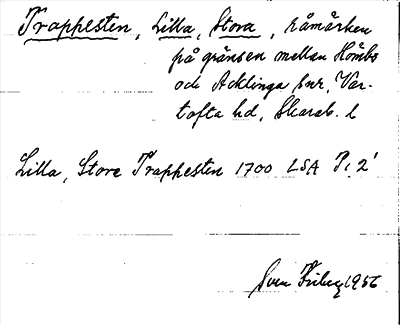 Trappesten, Lilla, Stora, råmärken
på gränsen mellan Hömb
och Acklinga snr, Var-
tofta hd, Skarab. l
Lilla, Stora Trappesten 1700 LSA P. 2
Sven Friberg 1956